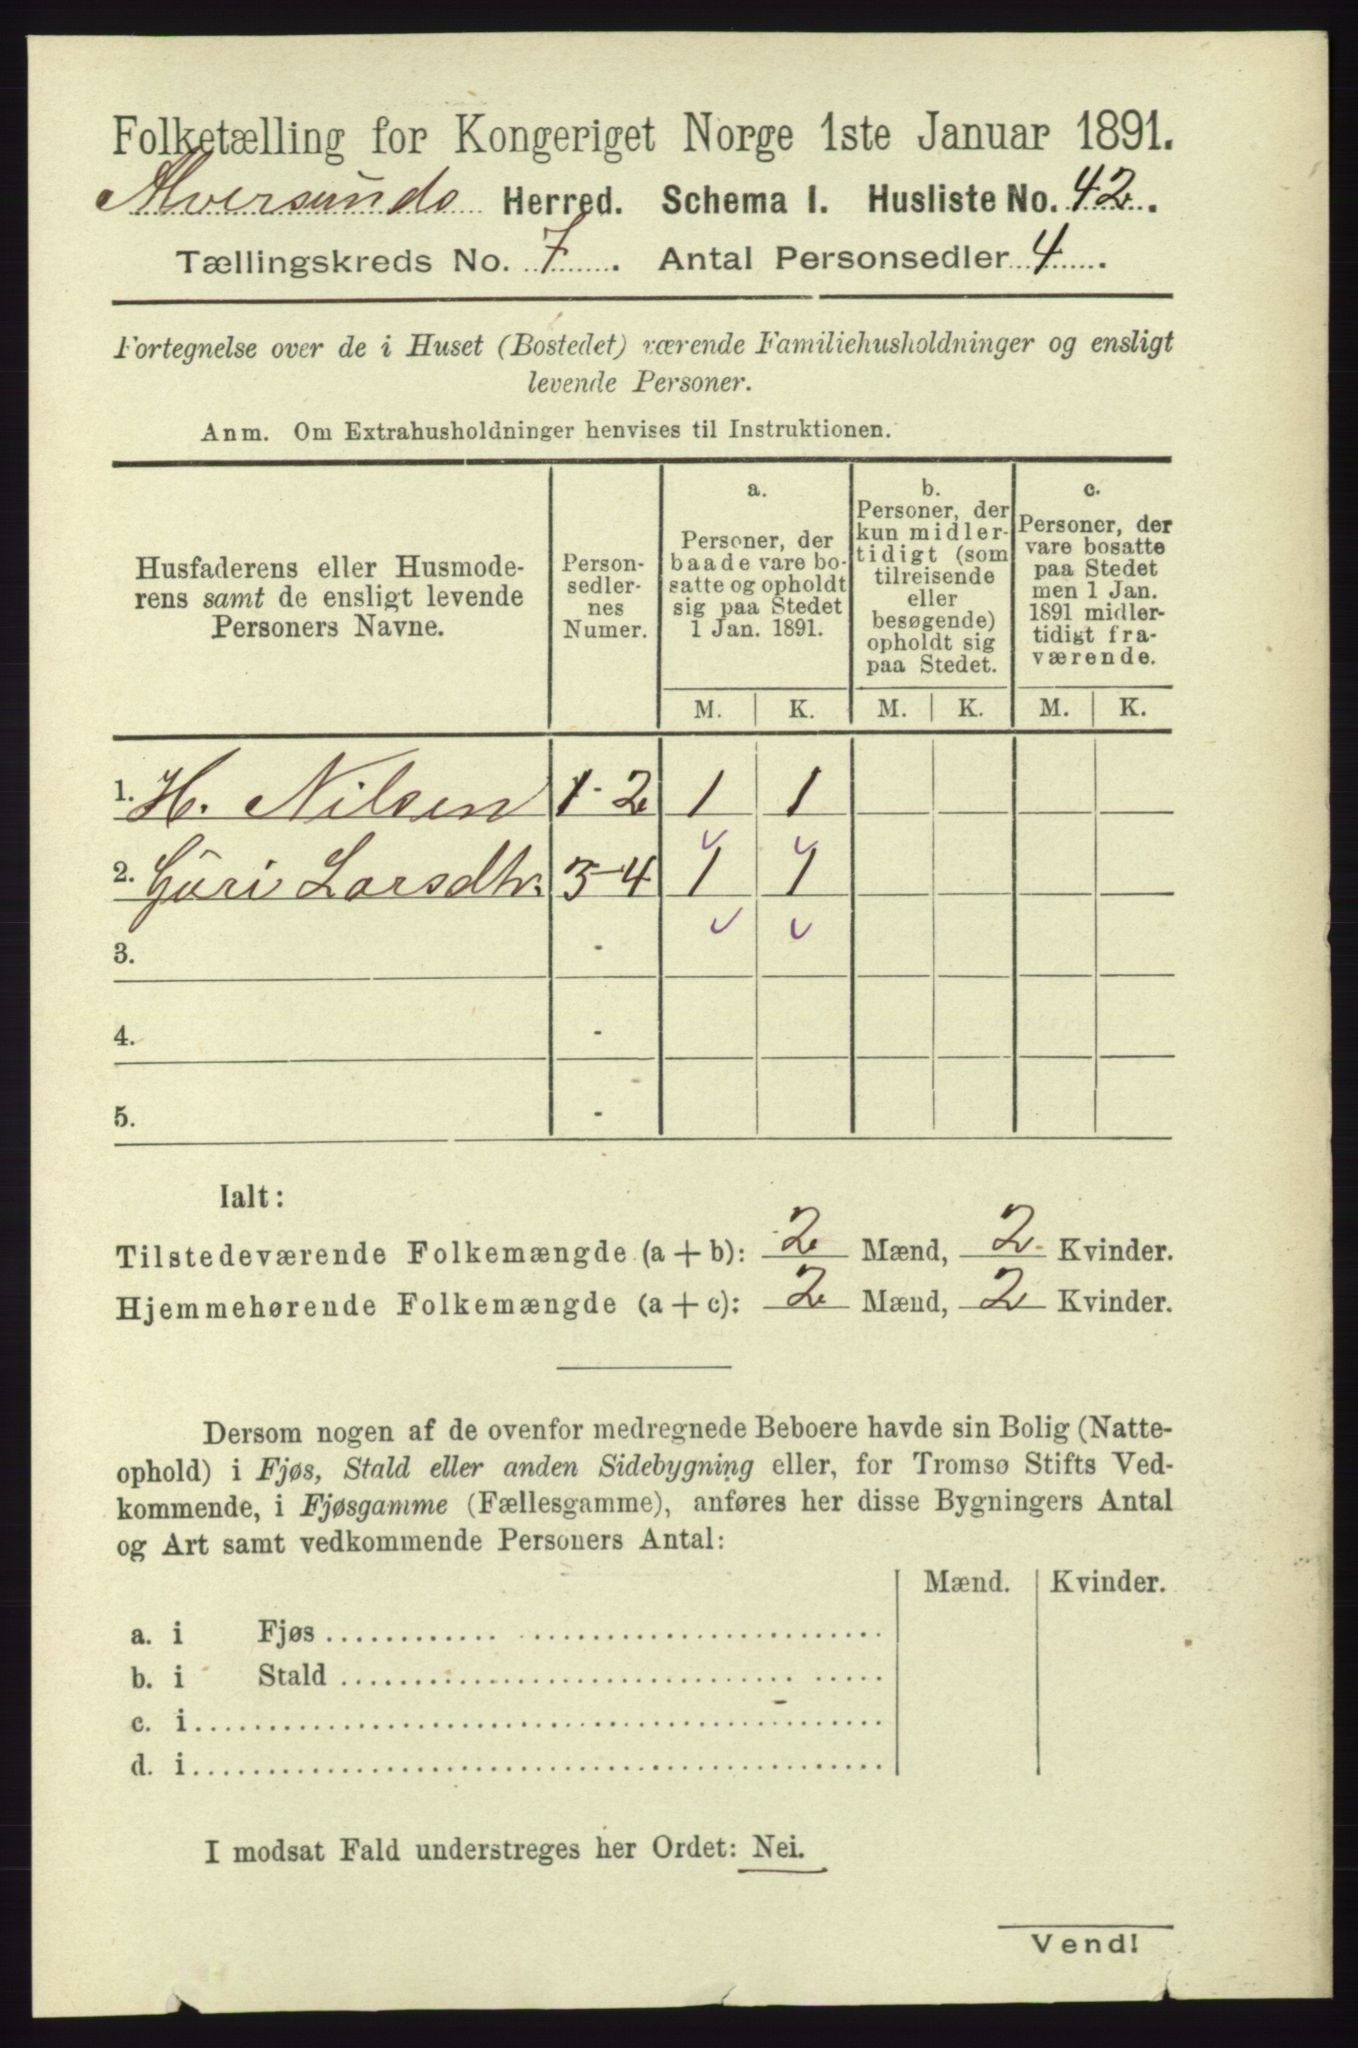 Folketælling for Kongeriget Norge 1ste Januar 1891.
Alversunds Herred. Schema I. Husliste No. 42.
Tællingskreds No. 7. Antal Personsedler 4.
Fortegnelse over de i Huset (Bostedet) værende Familiehusholdninger og ensligt
levende Personer.
Anm. Om Extrahusholdninger henvises til Instruktionen.
Husfaderens eller Husmode-
rens samt de ensligt levende
Personers Navne.
Person-
sedler-
nes
Numer.
a.
Personer, der
baade vare bo-
satte og opholdt
sig paa Stedet
1 Jan. 1891.
b.
Personer, der
kun midler-
tidigt (som
tilreisende
eller
besøgende)
opholdt sig
paa Stedet.
c.
Personer, der
vare bosatte
paa Stedet
men 1 Jan.
1891 midler-
tidigt fra-
værende.
M. K. M. K. M. K.
1. H. Nilsen 1-2 1 1
2. Guri Larsdtr. 3-4 1 1
3. -
4. -
5. -
Ialt:
Tilstedeværende Folkemængde (a + b): 2 Mænd, 2 Kvinder.
Hjemmehørende Folkemængde (a + c): 2 Mænd, 2 Kvinder.
Dersom nogen af de ovenfor medregnede Beboere havde sin Bolig (Natte-
ophold) i Fjøs, Stald eller anden Sidebygning eller, for Tromsø Stifts Ved-
kommende, i Fjøsgamme (Fællesgamme), anføres her disse Bygningers Antal
og Art samt vedkommende Personers Antal:
Mænd. Kvinder.
a. i Fjøs
b. i Stald
c. i
d. i
I modsat Fald understreges her Ordet: Nei.
Vend!